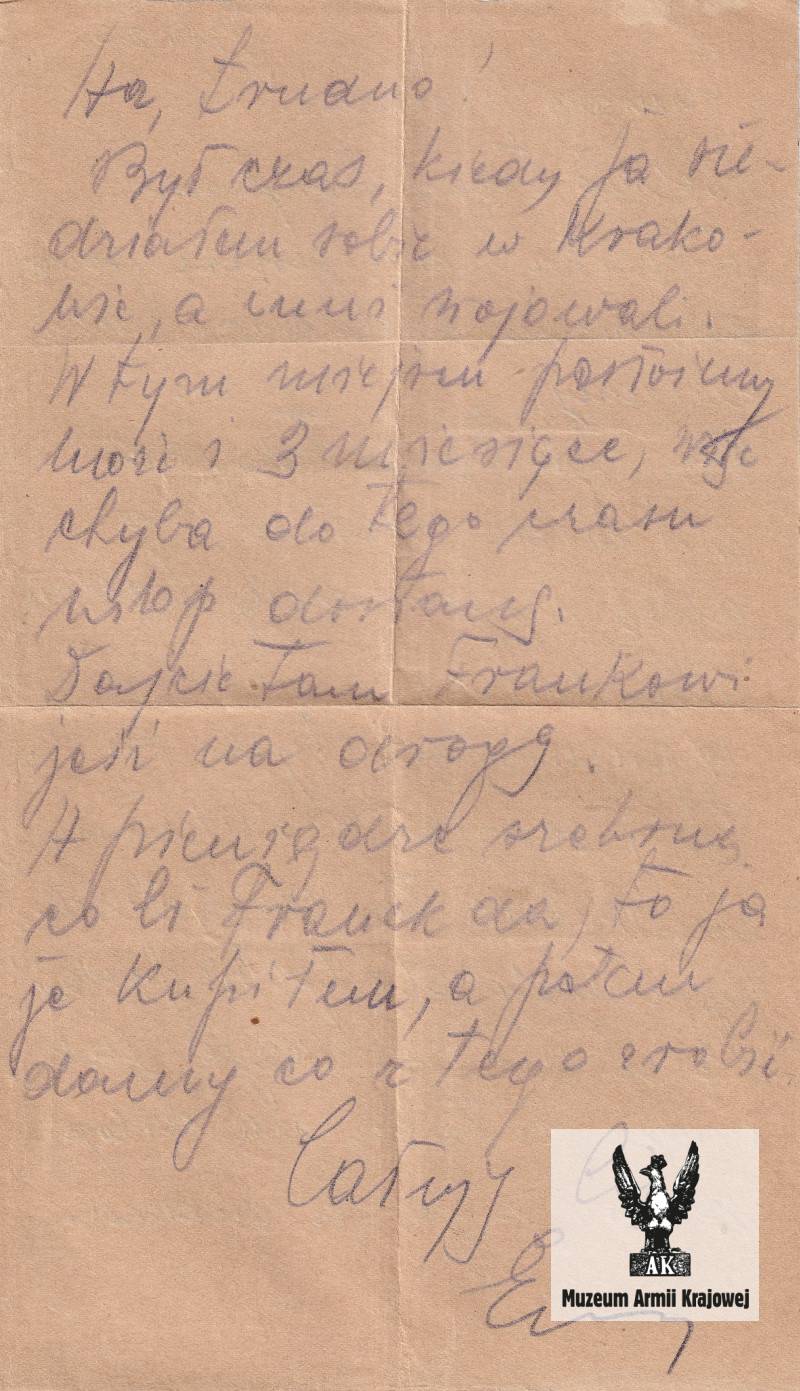 Ha, trudno!
Był czas, kiedy ja sie-
działem sobie w Krako-
wie, a inni wojowali.
W tym miejscu postoimy
może i 3 miesiące, więc
chyba do tego czasu
urlop dostanę.
Dajcie tam Frankowi
jeść na drogę.
A pieniądze srebrne
co Ci Franek da, to ja
je kupiłem, a potem
damy co z tego zrobić.
Całuję
AK
Muzeum Armii Krajowej